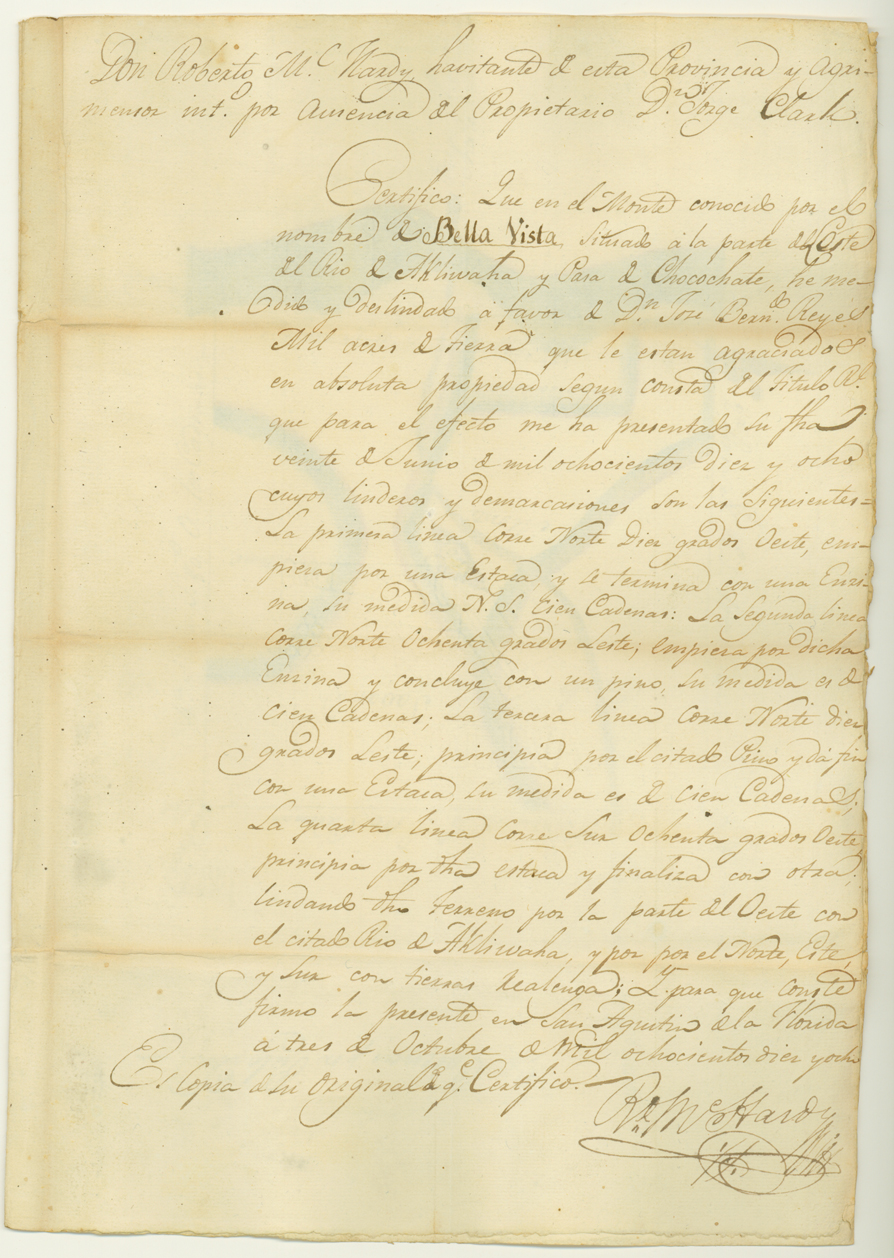 Don Roberto M.c Hardy, havitante de esta Provincia y Agri-
mensor int.o por Ausencia del Propietario D.n Jorge Clark.
Certifico: Que en el Monte conocido por el
nombre de Bella Vista, situado á la parte del Este
del Rio de Akliwaha y Pasa de Chocochate, he me-
dido y deslindado á favor de D.n José Bern.do Reyes
Mil acres de tierra que le estan agraciados
en absoluta propiedad segun consta del Titulo R.l
que para el efecto me ha presentado su fha
veinte de Junio de mil ochocientos diez y ocho
cuyos linderos y demarcasiones son las siguientes=
La primera linea corre Norte Diez grados Oeste, em-
pieza por una Estaca, y se termina con una Enzi-
na, su medida N. S. cien Cadenas: La segunda linea
corre Norte Ochenta grados Leste; empieza por dicha
Enzina y concluye con un pino, su medida es de
cien Cadenas; La tercera linea corre Norte diez
grados Leste; principia por el citado Pino y dá fin
con una Estaca, su medida es de cien Cadenas;
La quarta linea corre Sur Ochenta grados Oeste
principia por dha estaca y finaliza con otra,
lindando dho terreno por la parte del Oeste con
el citado Rio de Akliwaha, y por por el Norte, Este,
y Sur con tierras Realenga; Y para que conste
firmo la presente en San Agustin de la Florida
á tres de Octubre de Mil ochocientos diez y ocho
Es Copia de su Original de q.e Certifico.
R.t M.c Hardy